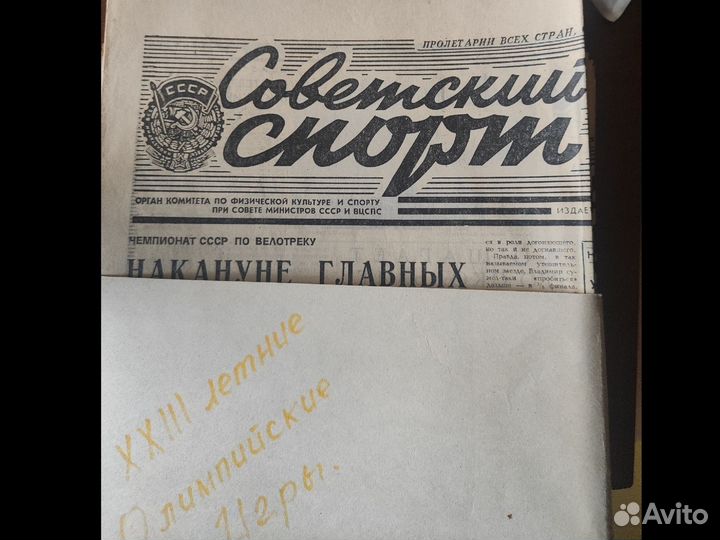 ПРОЛЕТАРИИ ВСЕХ СТРАН,
СССР
Советский
спорт
ОРГАН КОМИТЕТА ПО ФИЗИЧЕСКОЙ КУЛЬТУРЕ И СПОРТУ
ПРИ СОВЕТЕ МИНИСТРОВ СССР И ВЦСПС
ИЗДАЕ
ЧЕМПИОНАТ СССР ПО ВЕЛОТРЕКУ
НАКАНУНЕ ГЛАВНЫХ
ся в роли догоняющего,
но так и не догнавшего.
Правда, потом, в так
называемом утешитель-
ном заезде, Владимир су-
мел-таки «пробиться»
дальше — в
финала
XXIII летние
Олимпийские
Игры.
Avito